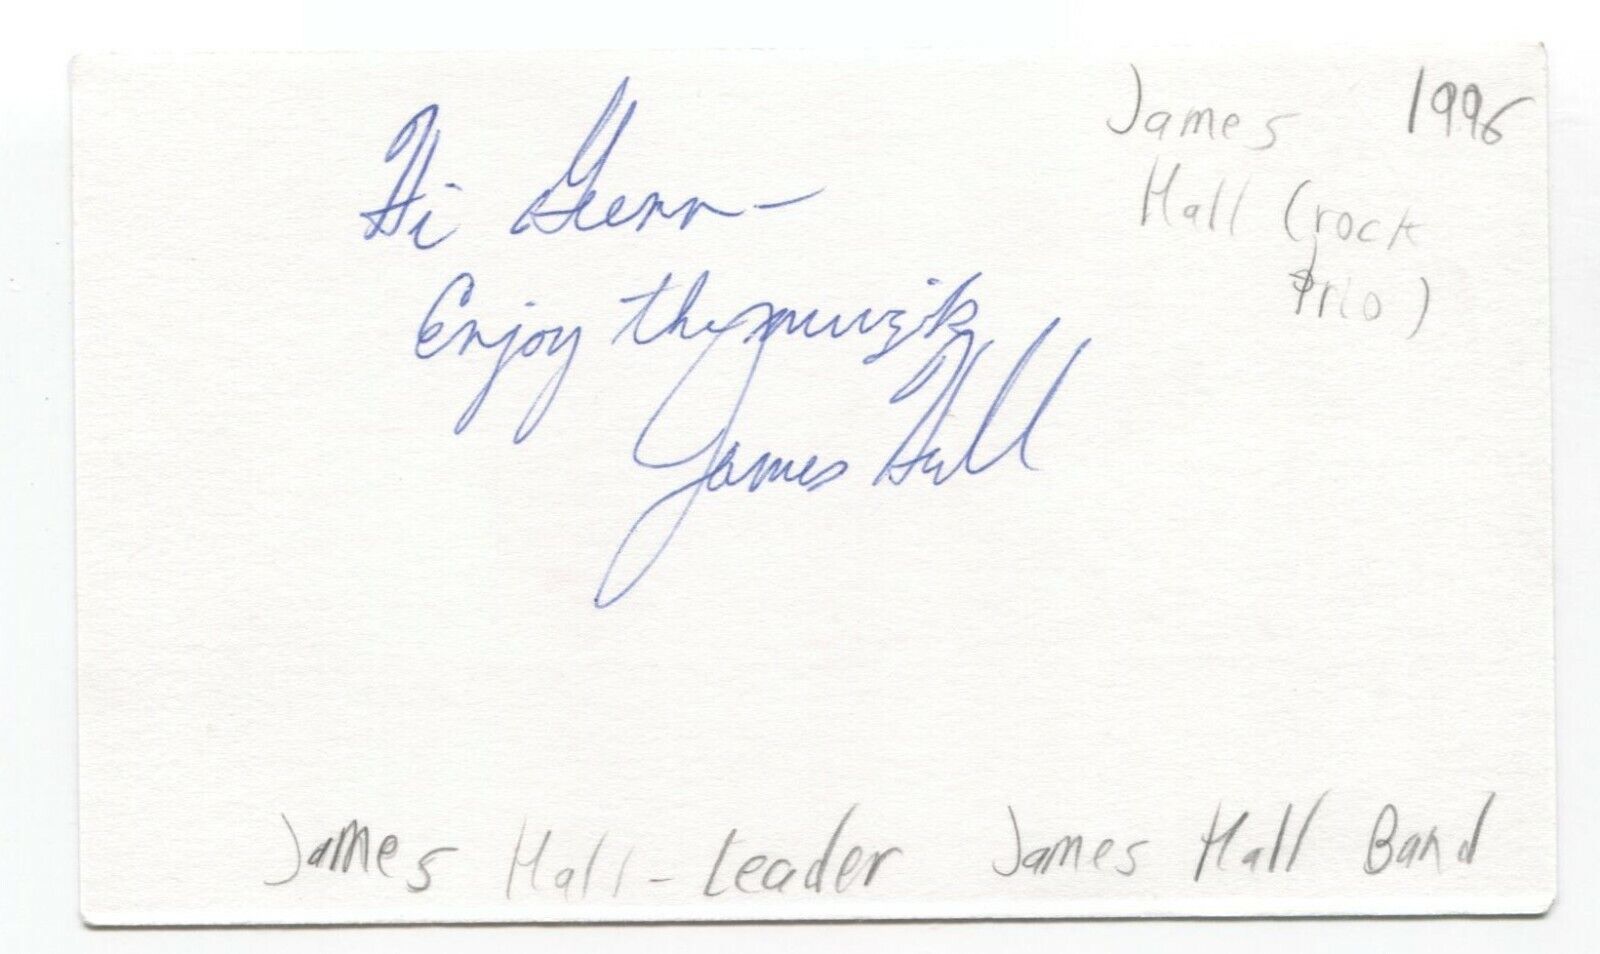 Hi Glenn -
Enjoy the muzik
James Hall
James 1996
Hall (rock
trio)
James Hall - Leader James Hall Band